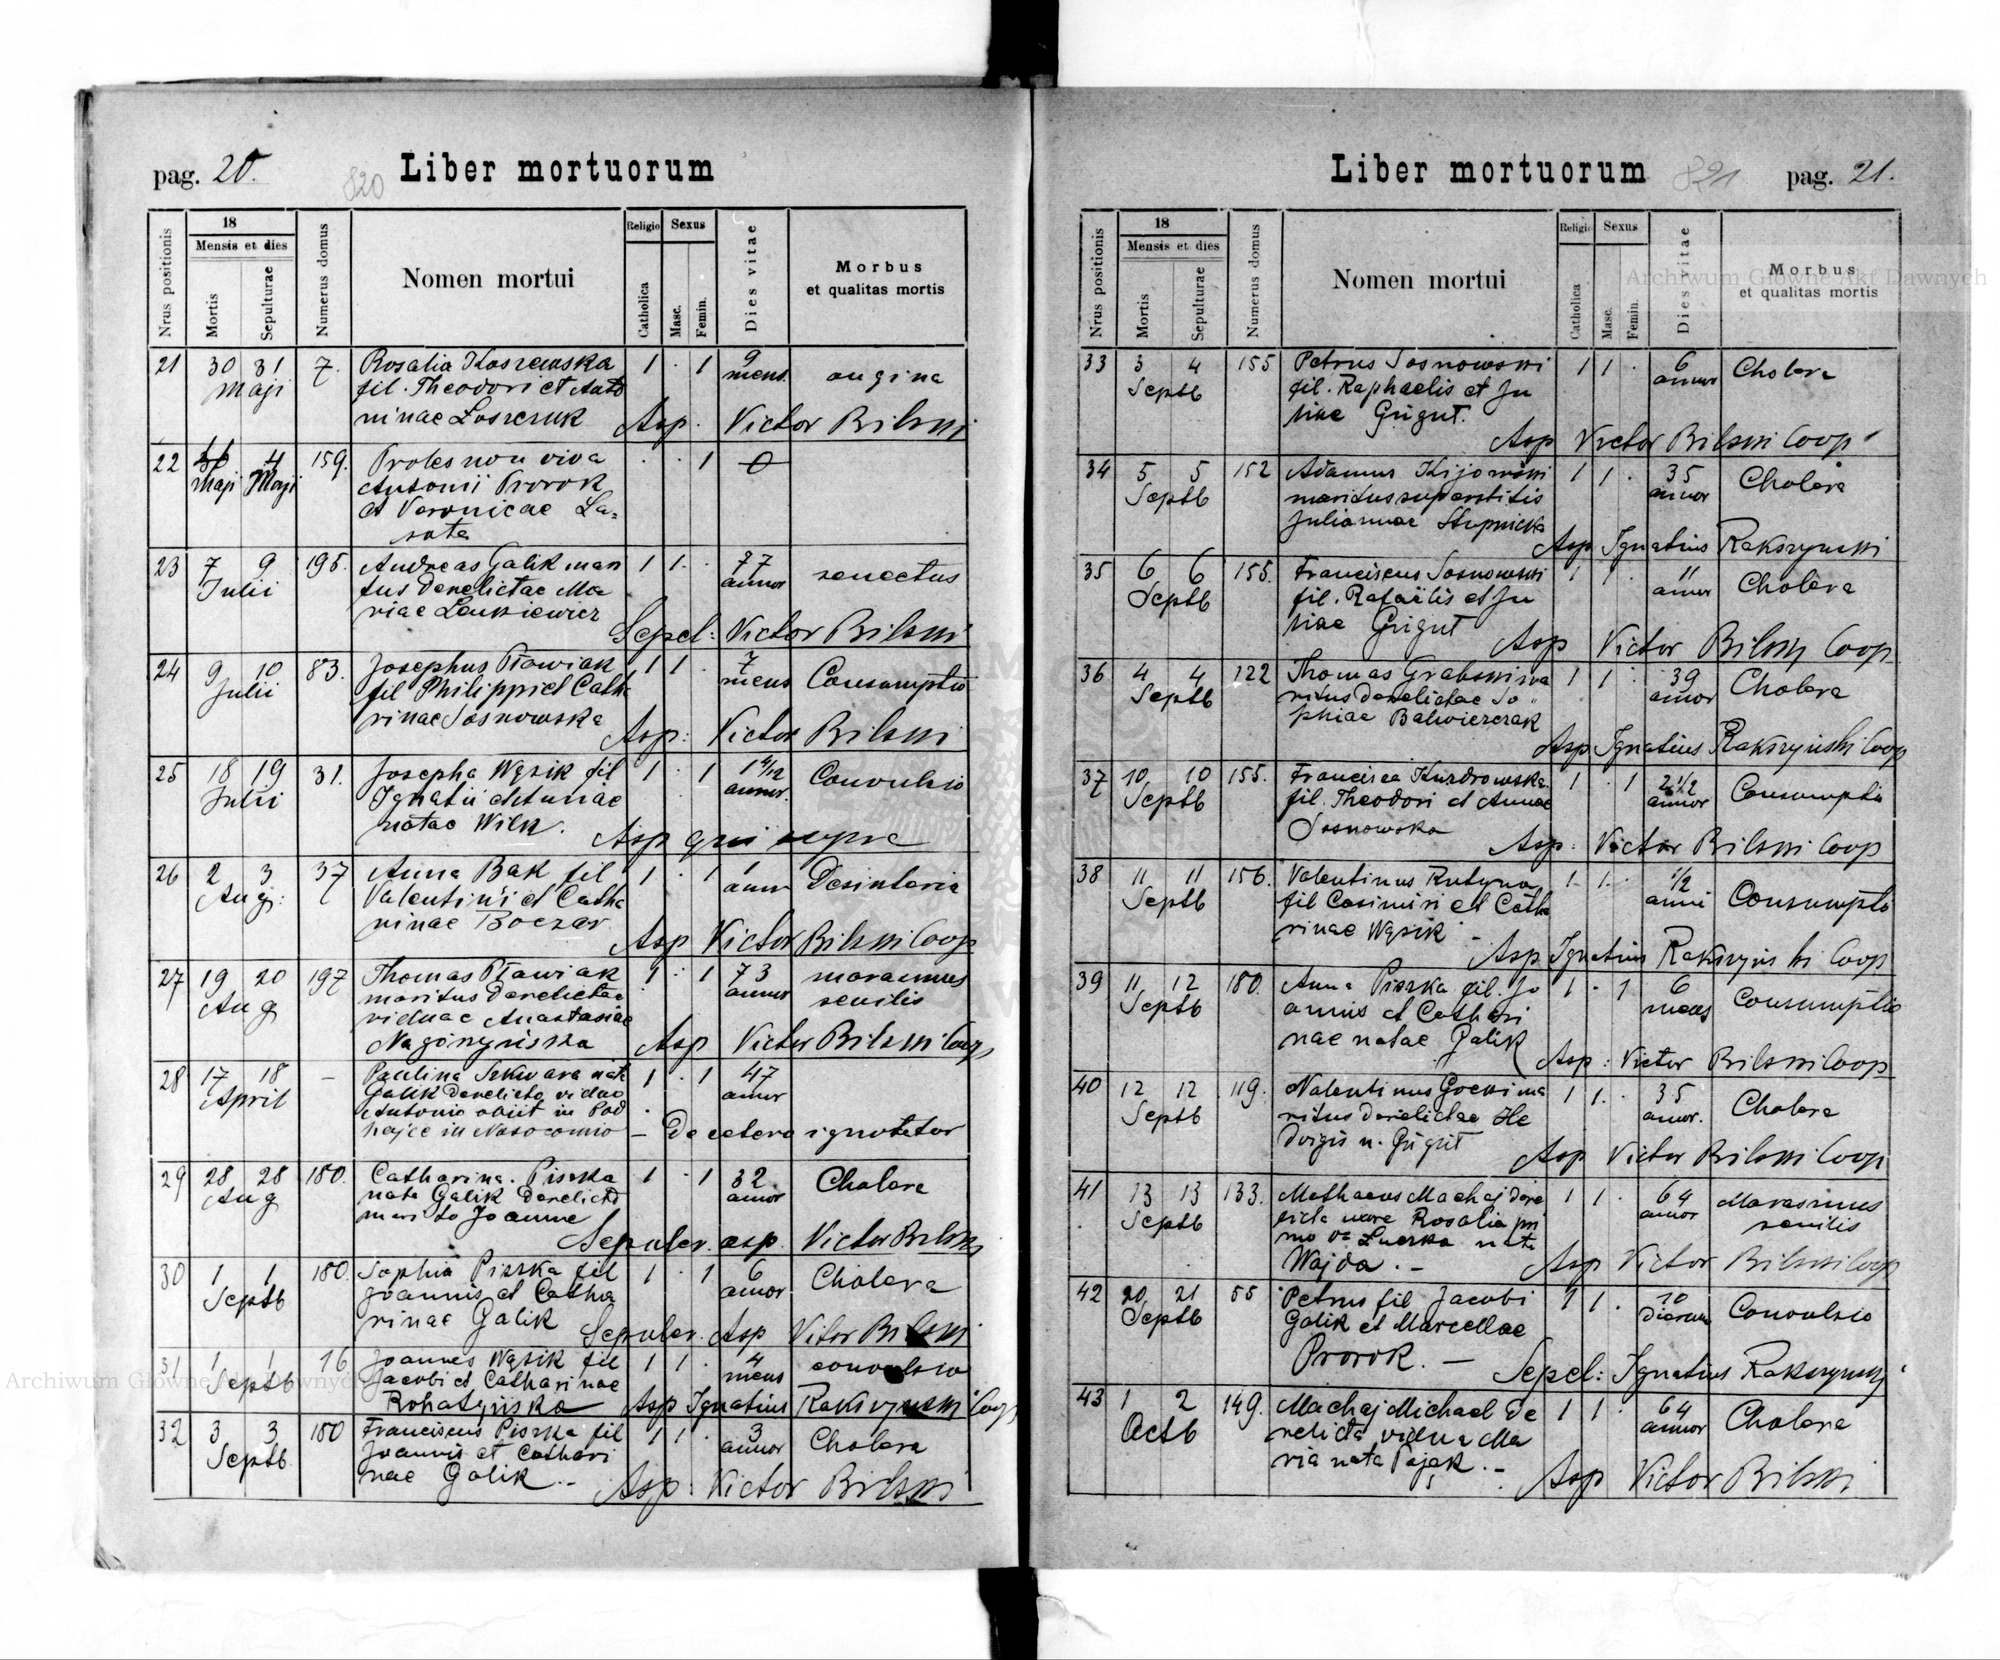 pag. 20.
820
Liber mortuorum
Nrus positionis
18
Mensis et dies
Mortis
Sepulturae
Numerus domus
Nomen mortui
Religio
Catholica
Sexus
Masc.
Femin.
Dies vitae
Morbus
et qualitas mortis
21 30 31 7. Rosalia Koszewska 1 · 1 9
Maji fil. Theodori et Anto mens. angina
ninae Loszczuk Asp. Victor Bilski
22 4 159. Proles non viva · · 1 0
Maji Maji Antonii Prorok
et Veronicae La=
sota
23 7 9 195. Andreas Galik mari 1 1 · 77
Julii tus derelictae Ma annor senectus
riae Leukiewicz
Sepel: Victor Bilski
24 9 10 83. Josephus Pławiak 1 1 · 7
Julii fil Philippi et Cath mens Consumptio
rinae Sosnowska
Asp: Victor Bilski
25 18 19 31. Josepha Wąsik fil 1 · 1 1 4/12 Convulsio
Julii Ignatii et annor.
natae Wilk. Asp qui supra
26 2 3 37 Anna Bak fil 1 · 1 1
Aug: Valentini et Catha anni Desinteria
rinae Boczar
Asp Victor Bilski Coop
27 19 20 197 Thomas Pławiak 1 · 1 73 marasmus
Aug maritus derelictae annor senilis
viduae Anastasiae
Nagórzyńska Asp Victor Bilski Coop
28 17 18 – Paulina Szkwara nata 1 · 1 47
April Galik derelicto viduo annor
Antonio obiit in Pod
hajce in Nosocomio – De cetero ignotetor
29 28 28 180. Catharina Piszka 1 · 1 32 Cholera
Aug nata Galik derelicto annor
marito Joanne
Sepulcr. asp. Victor Bilski
30 1 1 180. Sophia Piszka fil 1 · 1 6 Cholera
Septb Joannis et Catha annor
rinae Galik Sepulcr. Asp Vitor Bilski
31 1 1 16 Joannes Wąsik fil 1 1 · 4 convulsio
Septb Jacobi et Catharinae mens
Rohatyńska Asp Ignatius Rakszynski Coop
32 3 3 180 Franciscus Piszka fil 1 1 · 3
Septb. Joannis et Cathari annor Cholera
nae Galik.– Asp: Victor Bilski
Liber mortuorum
821
pag. 21.
Nrus positionis
18
Mensis et dies
Mortis
Sepulturae
Numerus domus
Nomen mortui
Religio
Catholica
Sexus
Masc.
Femin.
Dies vitae
Morbus
et qualitas mortis
33 3 4 155 Petrus Sosnowski 1 1 · 6 Cholera
Septb fil. Raphaelis et Ju annor
liae Grigut.
Asp Victor Bilski Coop
34 5 5 152 Adamus Kijowski 1 1 · 35 Cholera
Septb maritus superstitis annor
Juliannae Stupnicka
Asp Ignatius Rakszynski
35 6 6 155. Franciscus Sosnowski 1 1 · 11 Cholera
Septb fil. Rafaelis et Ju annor
liae Grigut
Asp Victor Bilski Coop
36 4 4 122 Thomas Grabski ma 1 1 · 39 Cholera
Septb ritus derelictae So annor
phiae Balwierczak
Asp Ignatius Rakszyński Coop
37 10 10 155. Francisca Kurdrowska 1 · 1 2 1/2 Consumptio
Septb fil. Theodori et Annae annor
Sosnowska
Asp: Victor Bilski Coop
38 11 11 156. Valentinus Rutyna 1 1 · 1/2
Septb fil Casimiri et Catha anni Consumptio
rinae Wąsik –
Asp Ignatius Rakszyński Coop
39 11 12 180. Anna Piszka fil. Jo 1 · 1 6 Consumptio
Septb annis et Cathari mens
nae natae Galik
Asp: Victor Bilski Coop
40 12 12 119. Valentinus ma 1 1 · 35
Septb ritus derelictae He annor. Cholera
dvigis n. Grigut
Asp Victor Bilski Coop
41 13 13 133. Mathaeus Machaj dere 1 1 · 64 Marasmus
Septb licta uxore Rosalia pri annor senilis
mo v. nata
Wajda.– Asp Victor Bilski Coop
42 20 21 55 Petrus fil Jacobi 1 1 · 10 Convulsio
Septb Galik et Marcellae dierum
Prorok.– Sepel: Ignatius Rakszynski
43 1 2 149. Machaj Michael de 1 1 · 64 Cholera
Octb relicta vidua Ma annor
ria nata Pająk.– Asp Victor Bilski
Archiwum Główne Akt Dawnych
Archiwum Główne Akt Dawnych